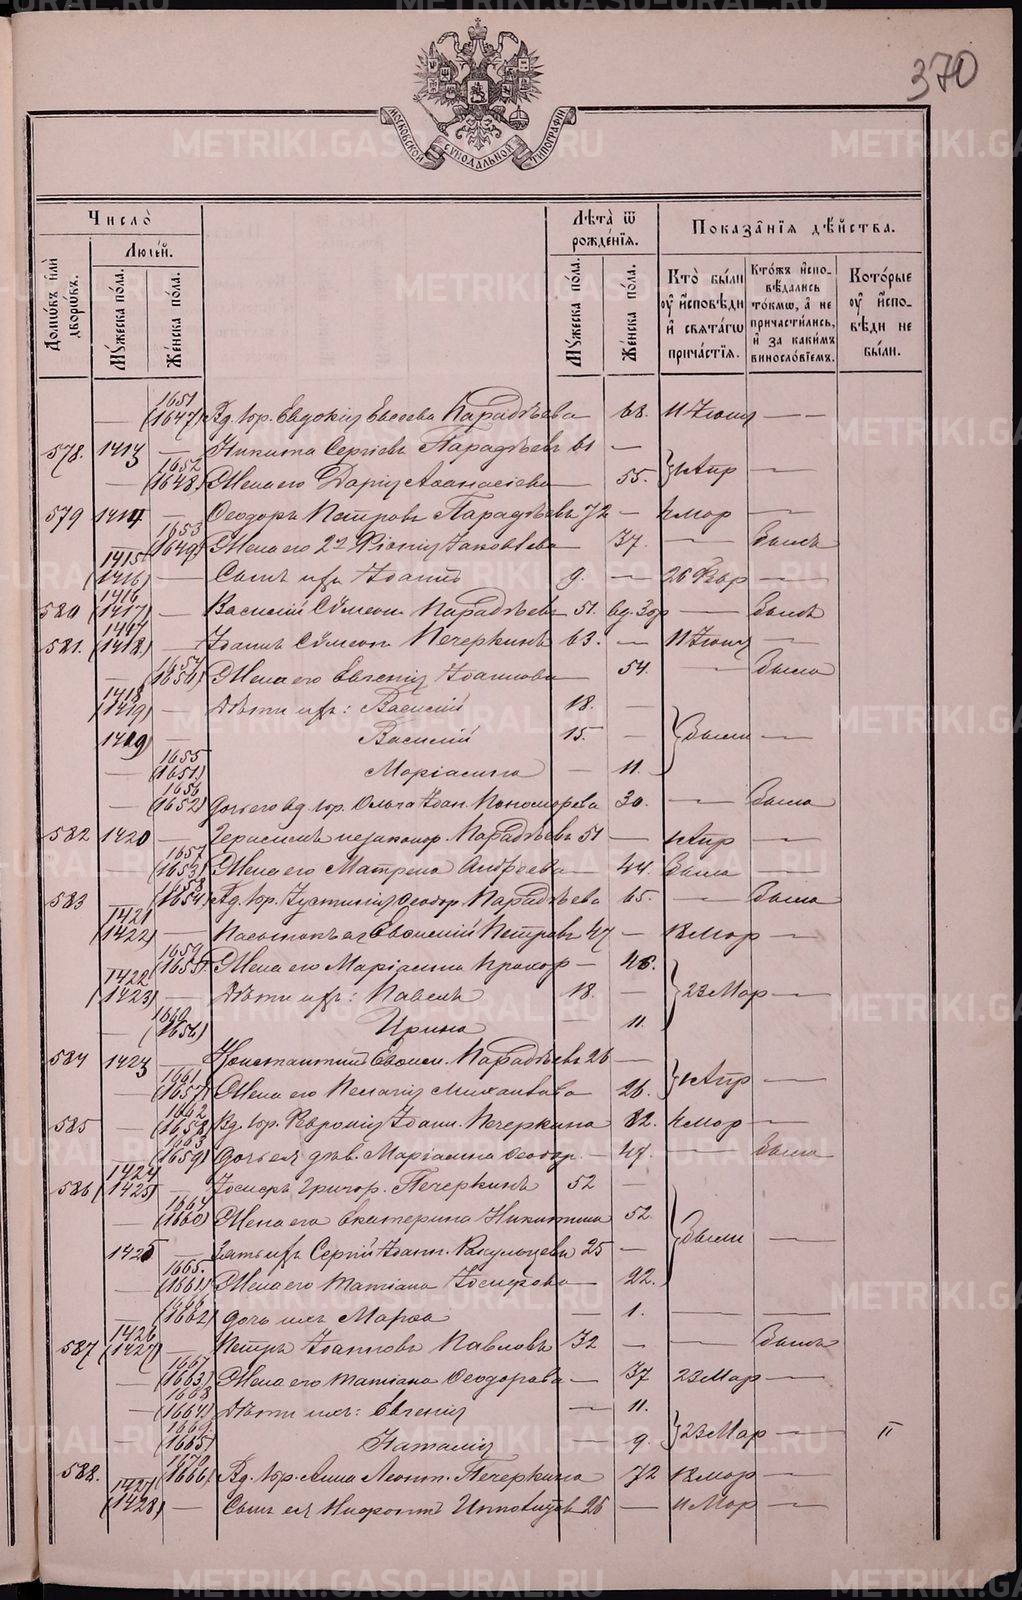 370
МОСКОВСКОЙ СѴНОДАЛЬНОЙ ТИПОГРАФІИ
Число̀
Домѡ́въ и҆лѝ дворѡ́въ.
Люде́й.
Мꙋ́жеска по́ла.
Же́нска по́ла.
Лѣ́та ѿ рожде́нїѧ.
Мꙋ́жеска по́ла.
Же́нска по́ла.
Показа̑нїѧ дѣ́йства.
Кто̀ бы́ли ᲂу҆ и҆сповѣ́ди и҆ свѧта́гѡ прича́стїѧ.
Кто́жъ и҆спо­вѣ́дались то́кмѡ, а҆ не причасти́лись, и҆ за каки́мъ винослові́емъ.
Кото́рые ᲂу҆ и҆спо­вѣ́ди не бы́ли.
1651
— (1647) Вд. кр. Евдокія Евсеева Парадѣева — 68. 11 Іюня —
578. 1413 — Никита Сергіевъ Парадѣевъ 61 —
1652
— (1648) Жена его Дарія Аѳанасіева 55. } 1 Апр —
579 1414 — Ѳеодоръ Петровъ Парадѣевъ 72 — 4 Мар —
1653
— (1649) Жена его 2я Хіонія Іаковлева — 37. — Былъ
1415
(1416) — Сынъ ихъ Іоаннъ 9. — 26 Фвр —
1416
580 (1417) — Василій Сѵмеон. Парадѣевъ 51. вд. — Былъ
1417
581. (1418) — Іоаннъ Сѵмеон. Печеркинъ 63. — 11 Іюня —
1654
— (1650) Жена его Евгенія Іоаннова 54. — Была
1418
(1419) — Дѣти ихъ: Василій 18. —
1419 — Василій 15. — } Были —
1655
— (1651) Маріамна — 11.
1656
— (1652) Дочь его вд. кр. Ольга Іоан. Пономарева 30. — Была
582 1420 — Герасимъ незаконор. Парадѣевъ 51 — 1 Апр —
1657
— (1653) Жена его Матрена Андреева — 44. Была —
1658
583 — (1654) Вд. кр. Іустинія Ѳеодор. Парадѣева 65. — Была
1421
(1422) — Пасынокъ ея Евѳимій Петровъ 47 — 18 Мар —
1659
— (1655) Жена его Маріамна Прохор — 46.
1422
(1423) — Дѣти ихъ: Павелъ 18. — } 23 Мар —
1660
— (1656) Ирина — 11.
584 1423 — Константинъ Евѳим. Парадѣевъ 26 —
1661
— (1657) Жена его Пелагія Михаилова 26. } 1 Апр —
1662
585 — (1658) Вд. кр. Евфимія Іоанн. Печеркина 82. 4 Мар —
1663
— (1659) Дочь ея дѣв. Маріамна Ѳеодор. — 47. — Была
1424
586 (1425) — Іосифъ Григор. Печеркинъ 52 —
1664
— (1660) Жена его Екатерина Никитина 52.
1425 — Зять ихъ Сергій Іоанн. 25 — } Были —
1665.
— (1661) Жена его Татіана Іосифова — 22.
1666
— (1662) Дочь ихъ Марѳа — 1. — —
1426
587 (1427) — Петръ Іоанновъ Павловъ 32 — — Былъ
1667
— (1663) Жена его Татіана Ѳеодорова — 37 23 Мар —
1668
— (1664) Дѣти ихъ: Евгенія — 11.
1669
— (1665) Наталія — 9. } 23 Мар — II
1670
588. — (1666) Вд. кр. Анна Леонт. Печеркина 72 18 Мар —
1427
(1428) — Сынъ ея Нифонтъ Ипполитовъ 26 — 11 Мар —